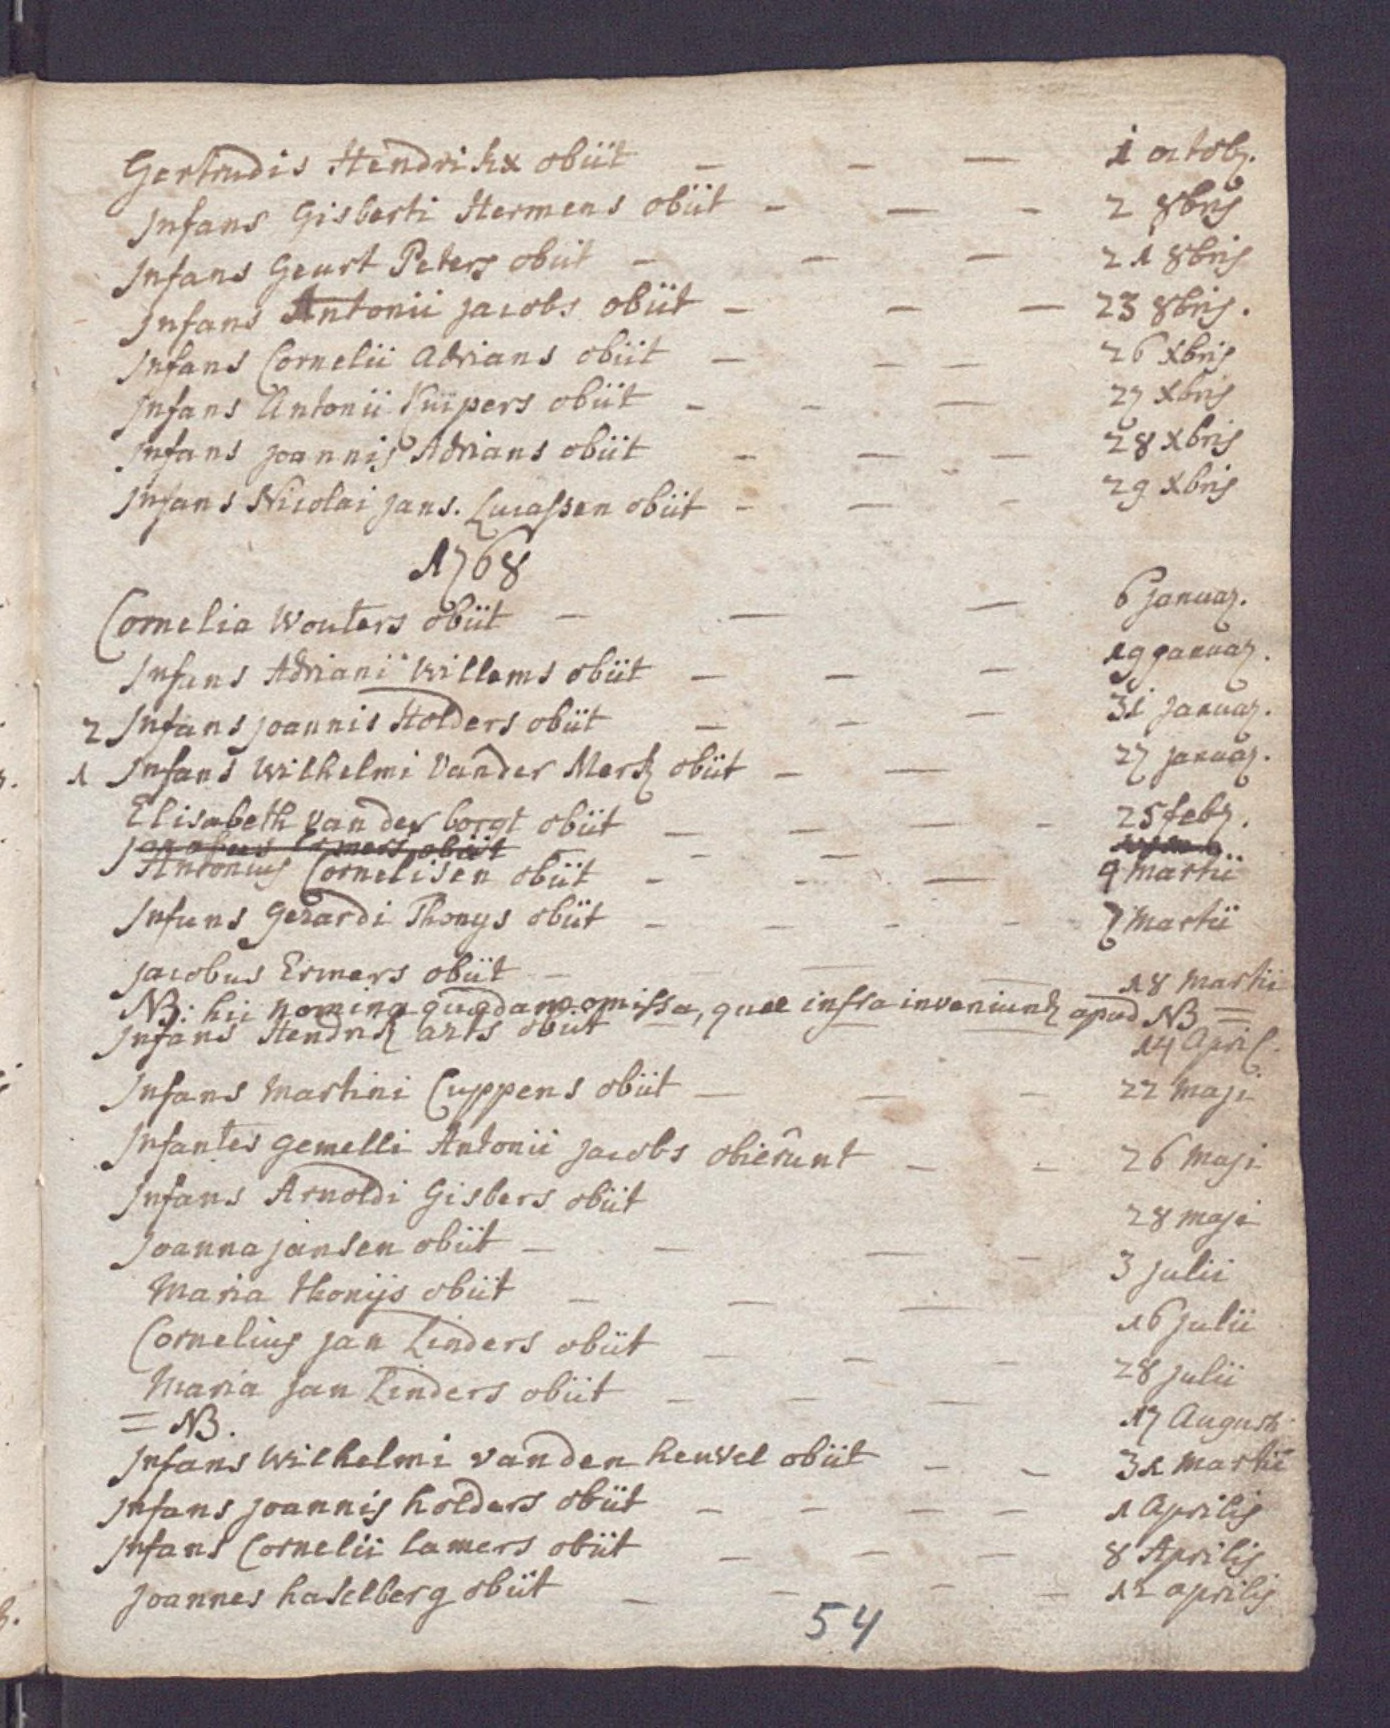 Gertrudis Hendrikx obiit — — — 1 octob.
Infans Gisberti Hermens obiit - — - 2 8bris
Infans Geurt Peters obiit - - — 21 8bris
Infans Antonii Jacobs obiit — - — 23 8bris.
Infans Cornelii Adrians obiit — - — 26 Xbris
Infans Antonii Kuijpers obiit - - — 27 Xbris
Infans Joannis Adrians obiit - — — 28 Xbris
Infans Nicolai Jans. Lucassen obiit - — - 29 Xbris
1768
Cornelia Wouters obiit — — — 6 Januar.
Infans Adriani Willems obiit — — — 19 Januar.
2 Infans Joannis Holders obiit — — — 31 Januar.
1 Infans Wilhelmi Vander Merk obiit — — 27 Januar.
Elisabeth van der borgt obiit — — - - 25 feb.
Jacobus Ermers obiit
Antonius Cornelisen obiit - - — 9 Martii
Infans Gerardi Thonys obiit — - - - 7 Martii
Jacobus Ermers obiit — — — 18 Martii
NB: hic nomina quaedam omissa, quae infra inveniunt apud NB =
Infans Hendrik arts obiit — — — 14 April.
Infans Martini Cuppens obiit — — - 22 Maji
Infantes gemelli Antonii Jacobs obierunt — - 26 Maji
Infans Arnoldi Gisbers obiit 28 maji
Joanna Jansen obiit — — — - 3 Julii
Maria thonijs obiit — — — 16 Julii
Cornelius Jan Linders obiit — - - 28 Julii
Maria Jan Linders obiit — - — 17 Augusti
= NB.
Infans Wilhelmi van den heuvel obiit — - 31 Martii
Infans Joannis holders obiit — - — - 1 Aprilis
Infans Cornelii Lamers obiit — — — 8 Aprilis
Joannes haselberg obiit — - - — 12 aprilis
54